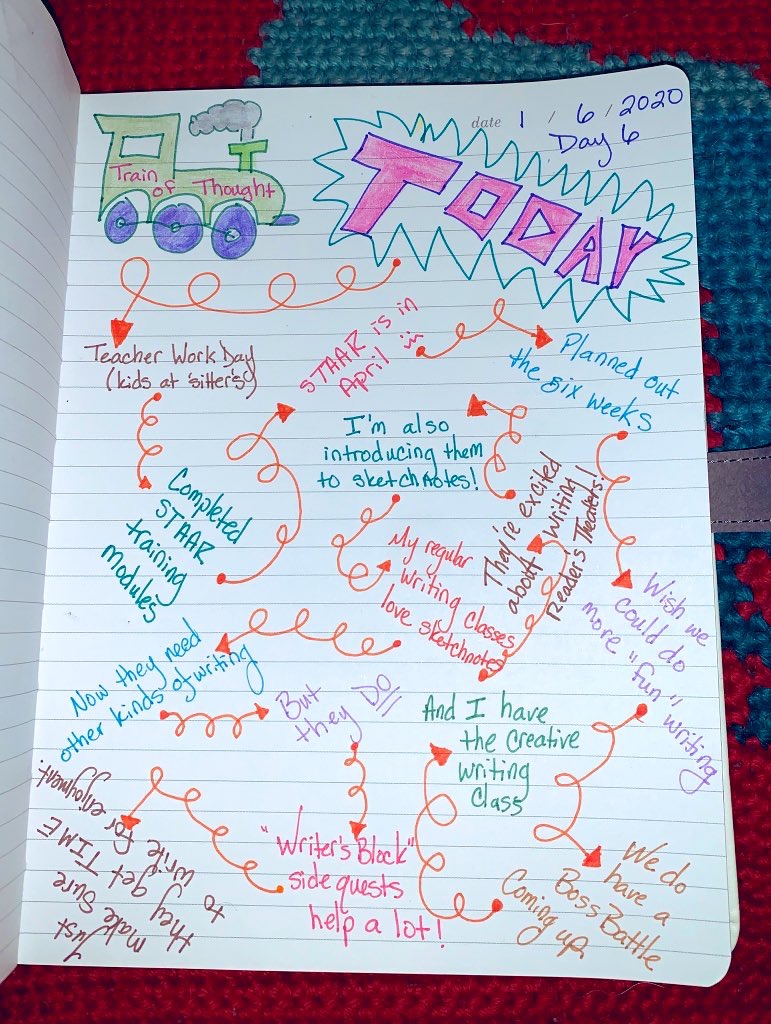 date 1 / 6 / 2020
Day 6
Train
of Thought
TODAY
Teacher Work Day
(kids at sitter's)
Completed
STAAR
training
modules
STAAR is in
April
Planned out
the six weeks
Wish we
could do
more "fun" writing
We do
have a
Boss Battle
Coming up.
And I have
the creative
writing
class
They're excited
about writing
Reader's Theaters!
I'm also
introducing them
to sketchnotes!
My regular
writing classes
love sketchnotes
Now they need
other kinds of writing
But
they DO!!
"Writer's Block"
side quests
help a lot!
Just
make sure
they get TIME
to write for enjoyment.